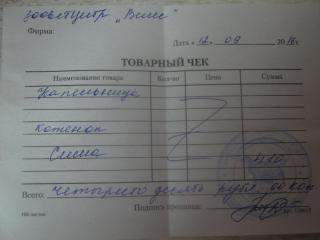 зооветцентр „Велес"
Фирма:
Дата « 12 » 09 2016 г.
ТОВАРНЫЙ ЧЕК
Наименование товара Кол-во Цена Сумма
Капельница
Котенок
Сима 410
Всего: Четыреста десять рубл. 00 коп
Подпись продавца: